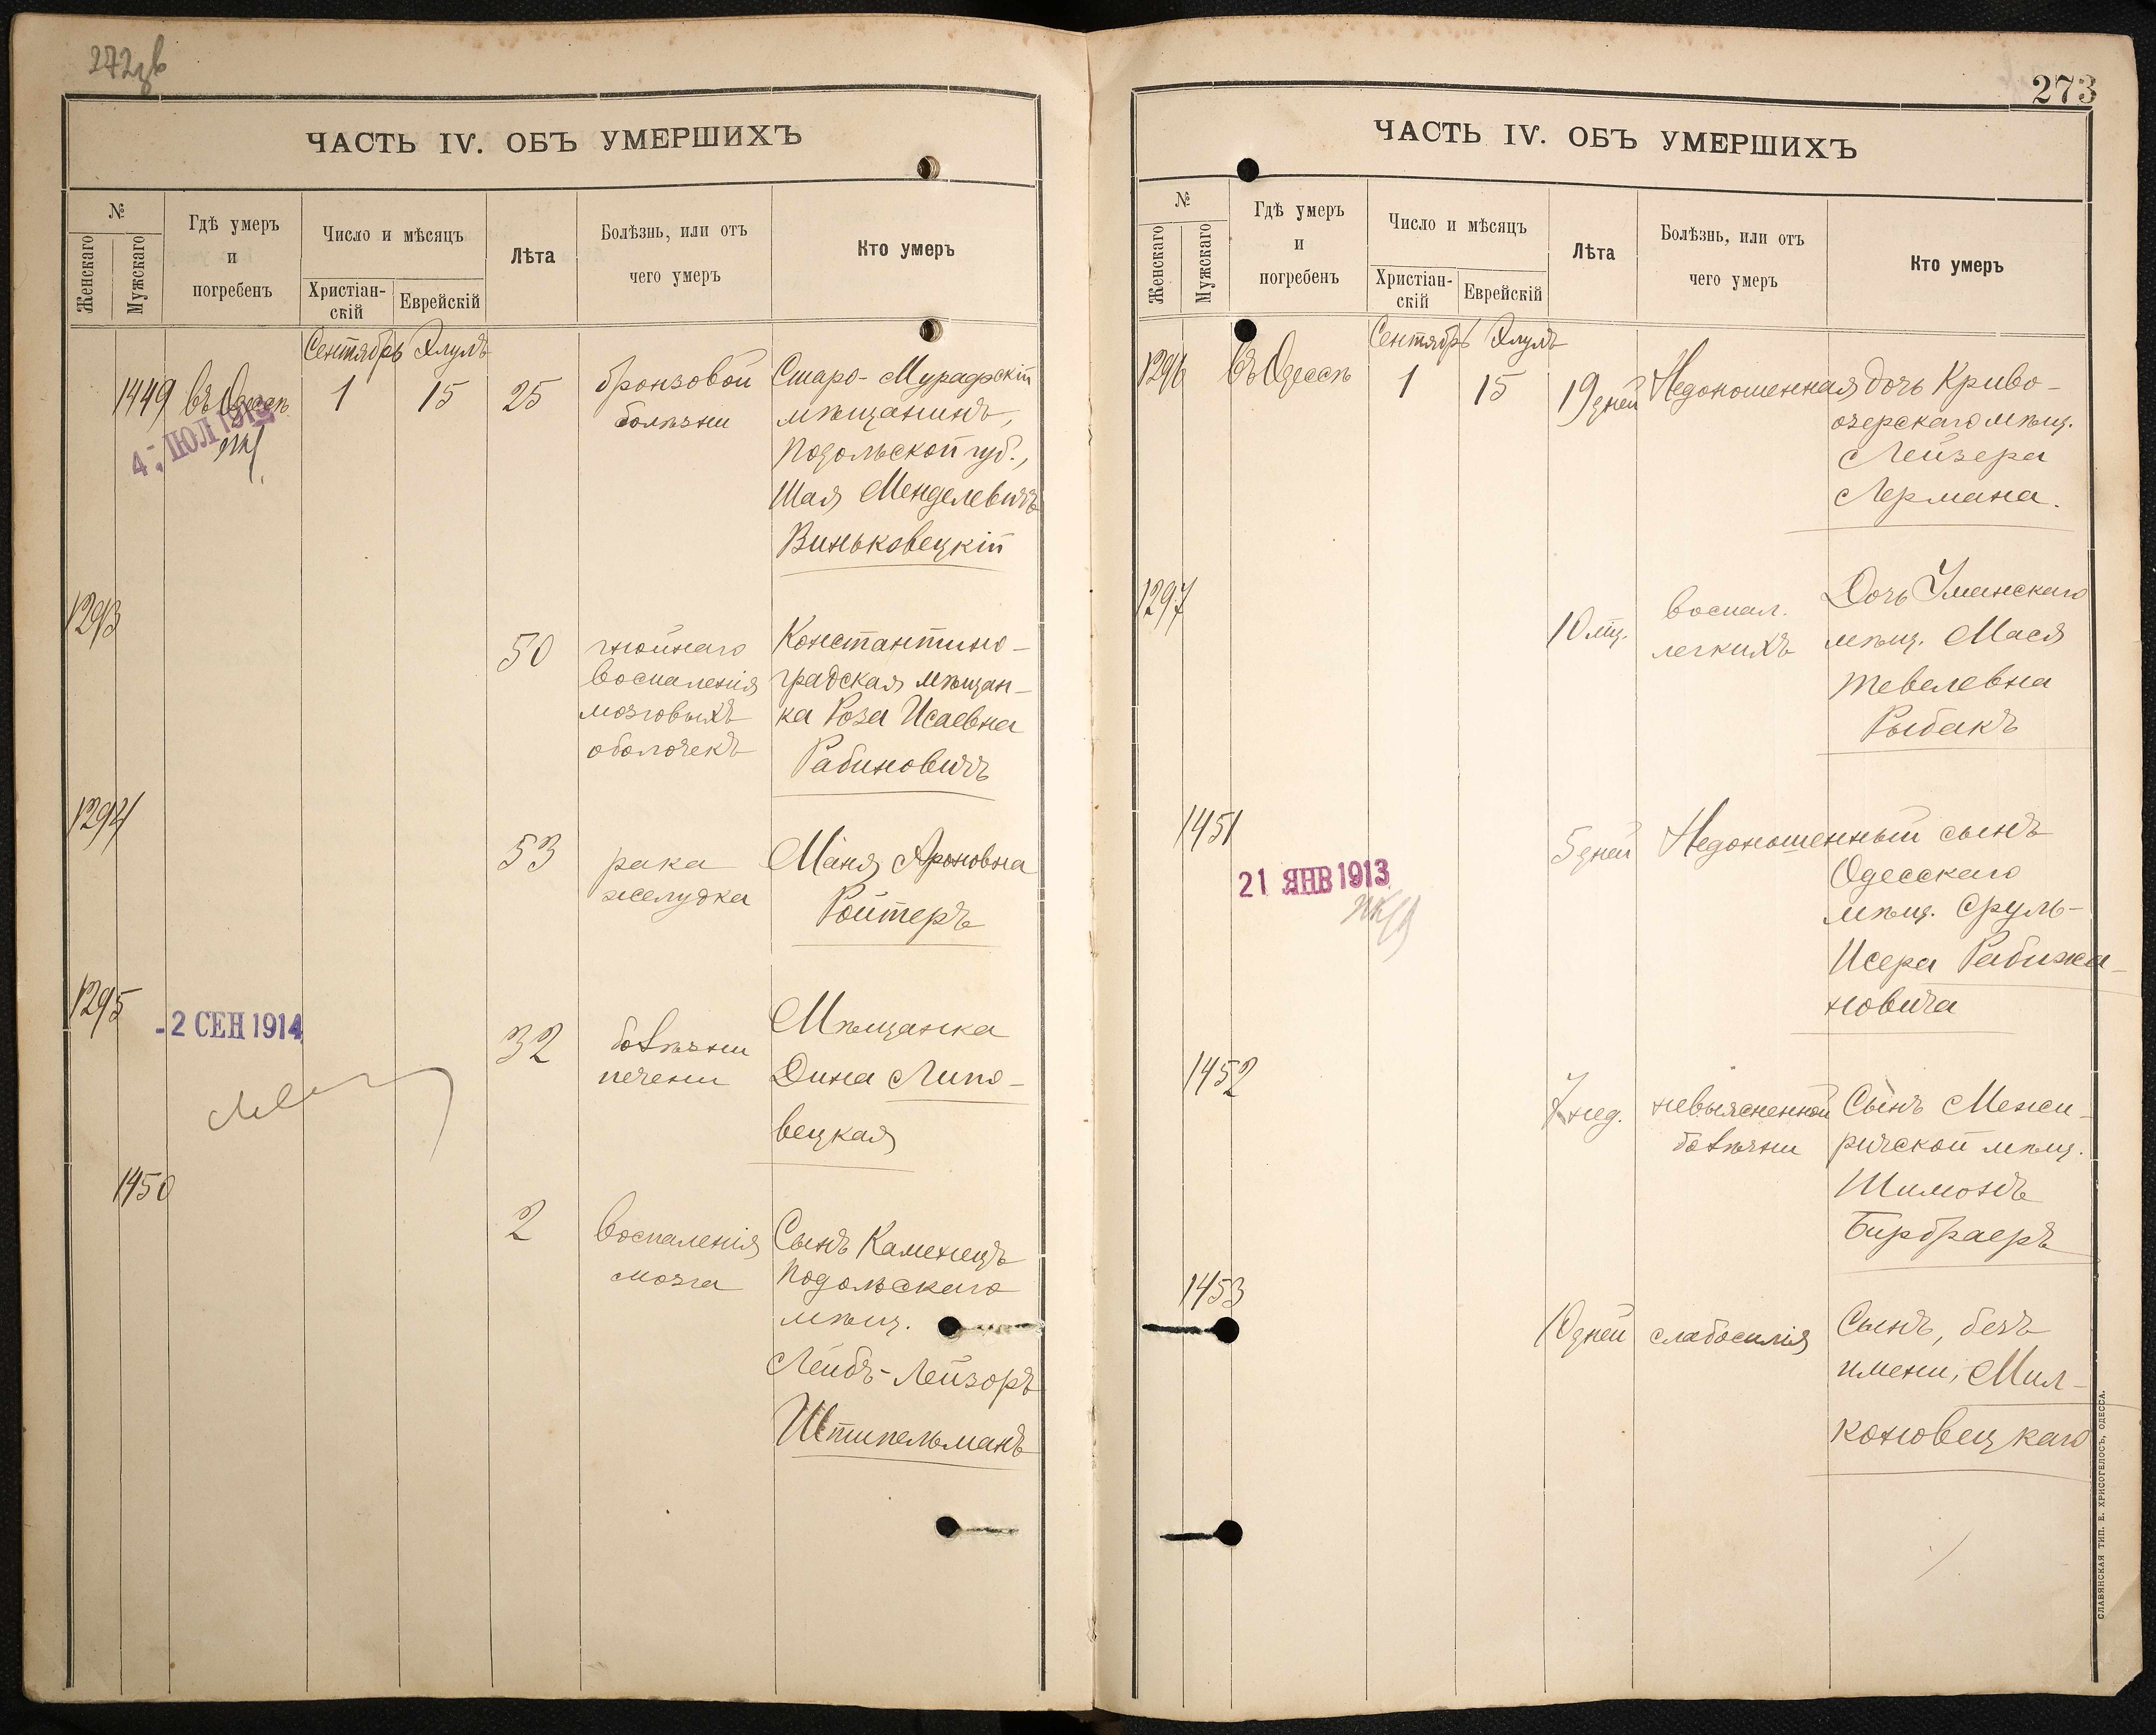 272
ЧАСТЬ IV. ОБЪ УМЕРШИХЪ
№
Женскаго
Мужскаго
Гдѣ умеръ
и
погребенъ
Число и мѣсяцъ
Христіан-
скій
Еврейскій
Лѣта
Болѣзнь, или отъ
чего умеръ
Кто умеръ
Сентябрь Элулъ
1449 въ Одессѣ 1 15 25
4- ИЮЛ 1913
бронзовой
болѣзни
Старо-Мурафскій
мѣщанинъ,
Подольской губ.,
Шая Менделевичъ
Виньковецкій
1293
50
гнойнаго
воспаленія
мозговыхъ
оболочекъ
Константино-
градская мѣщан-
ка Роза Исаевна
Рабиновичъ
1294
53
рака
желудка
Маня Ароновна
Ройтеръ
1295
-2 СЕН 1914
32
болѣзни
печени
Мѣщанка
Дина Липо-
вецкая
1450
2
воспаленія
мозга
Сынъ Каменецъ
Подольскаго
мѣщ.
Лейбъ-Лейзоръ
Штипельманъ
273
ЧАСТЬ IV. ОБЪ УМЕРШИХЪ
№
Женскаго
Мужскаго
Гдѣ умеръ
и
погребенъ
Число и мѣсяцъ
Христіан-
скій
Еврейскій
Лѣта
Болѣзнь, или отъ
чего умеръ
Кто умеръ
Сентябрь Элулъ
1296 въ Одессѣ 1 15 19 дней
Недоношенная дочь Криво-
озерскаго мѣщ.
Лейзера
Лермана.
1297
10 мц.
воспал.
легкихъ
Дочь Уманскаго
мѣщ. Мася
Тевелевна
Рыбакъ
1451
21 ЯНВ 1913
5 дней
Недоношенный сынъ
Одесскаго
мѣщ. Сруль-
Исера Рабижа-
новича
1452
7 нед.
невыясненной
болѣзни
Сынъ Межи-
ричской мѣщ.
Шимонъ
Бирбраеръ
1453
10 дней
слабосилія
Сынъ, безъ
имени, Мил-
коновецкаго
СЛАВЯНСКАЯ ТИП. Е. ХРИСОГЕЛОСЪ, ОДЕССА.